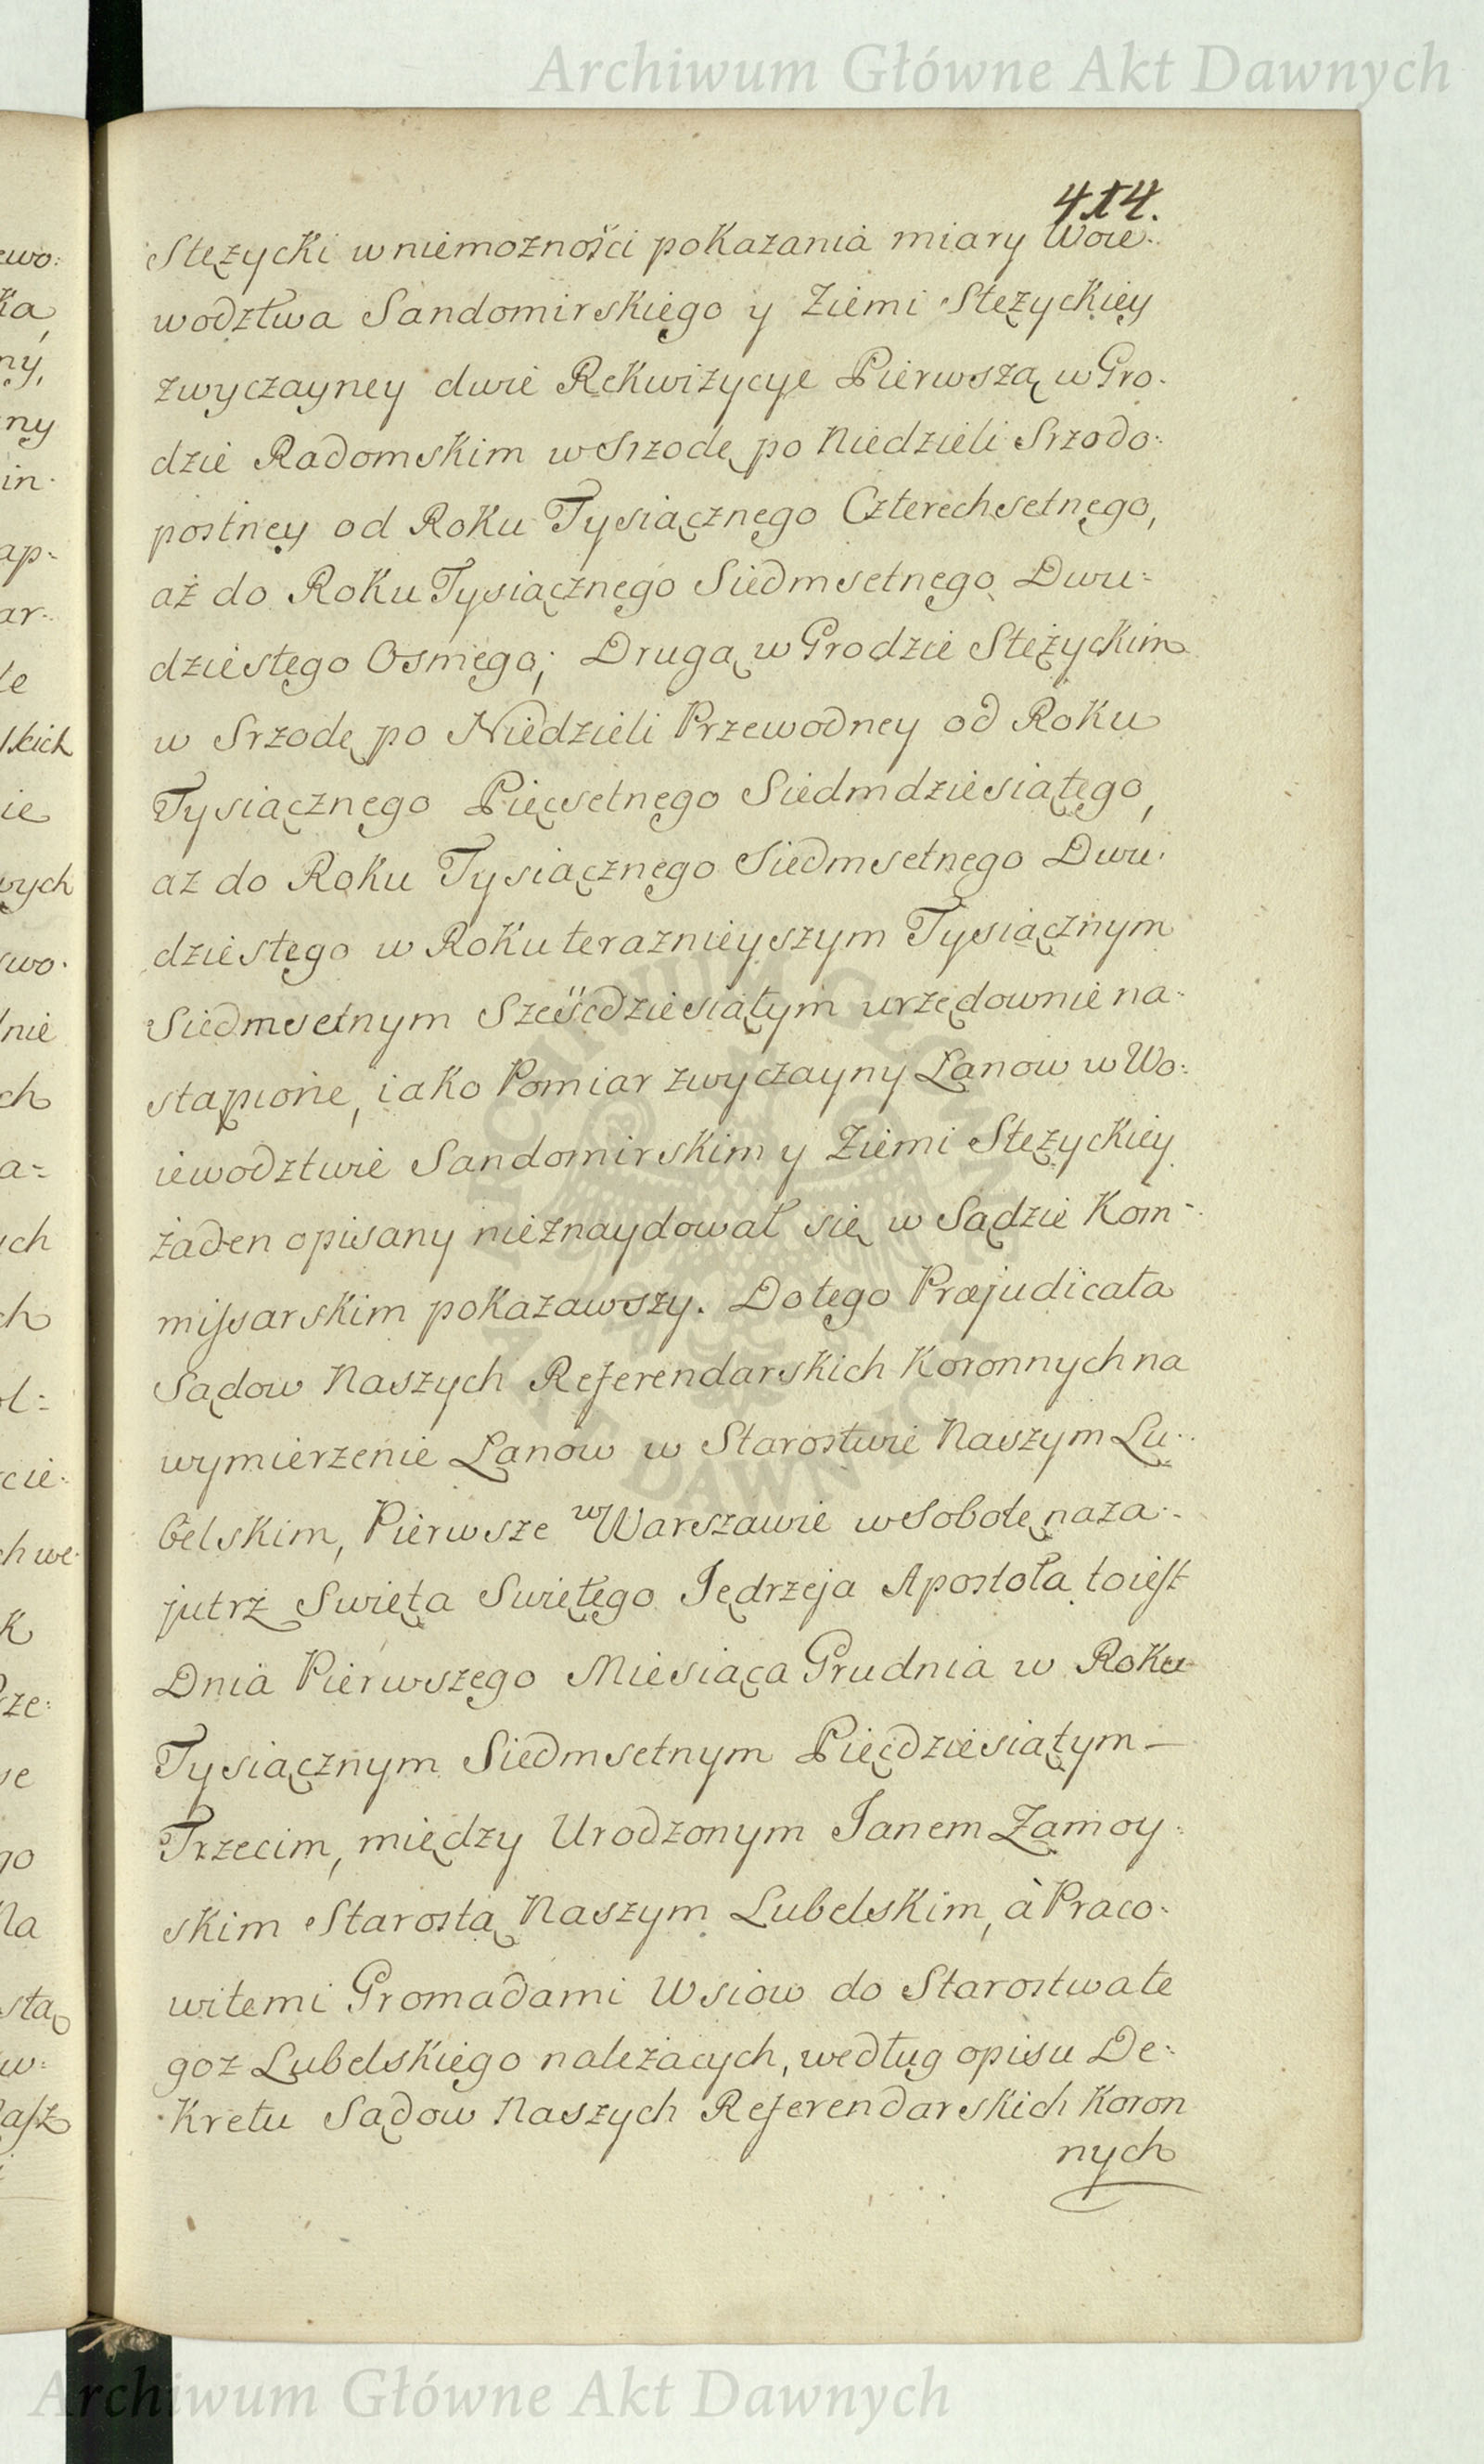 Archiwum Główne Akt Dawnych
414.
Stężycki w niemożności pokazania miary Woie-
wodztwa Sandomirskiego y Ziemi Stężyckiey
zwyczayney dwie Rekwizycye Pierwszą w Gro-
dzie Radomskim w Srzodę po Niedzieli Srzodo-
postney od Roku Tysiącznego Czterechsetnego,
aż do Roku Tysiącznego Siedmsetnego Dwu-
dziestego Osmego; Drugą w Grodzie Stężyckim
w Srzodę po Niedzieli Przewodney od Roku
Tysiącznego Pięcsetnego Siedmdziesiątego,
az do Roku Tysiącznego Siedmsetnego Dwu-
dziestego w Roku teraznieyszym Tysiącznym
Siedmsetnym Sześcdziesiątym urzędownie na-
stąpione, iako Pomiar zwyczayny Łanow w Wo-
iewodztwie Sandomirskim y Ziemi Stężyckiey
żaden opisany nieznaydował się w Sądzie Kom-
missarskim pokazawszy. Do tego Præjudicata
Sądow Naszych Referendarskich Koronnych na
wymierzenie Łanow w Starostwie Naszym Lu-
belskim, Pierwsze w Warszawie w Sobotę naza-
jutrz Swięta Swiętego Jędrzeja Apostoła toiest
Dnia Pierwszego Miesiąca Grudnia w Roku
Tysiącznym Siedmsetnym Pięcdziesiątym —
Trzecim, między Urodzonym Janem Zamoy-
skim Starostą Naszym Lubelskim, à Praco-
witemi Gromadami Wsiow do Starostwa te
goz Lubelskiego należących, według opisu De-
kretu Sądow Naszych Referendarskich Koron
nych
Archiwum Główne Akt Dawnych